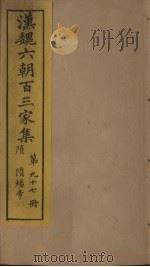 漢魏六朝百三家集
隋 隋煬帝
第九十七冊